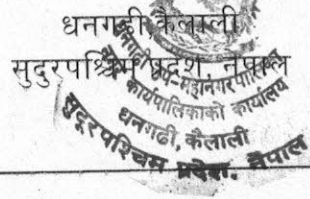 धनगढी, कैलाली
सुदुरपश्चिम प्रदेश, नेपाल
धनगढी उप-महानगरपालिका
कार्यपालिकाको कार्यालय
धनगढी, कैलाली
सुदूरपश्चिम प्रदेश, नेपाल